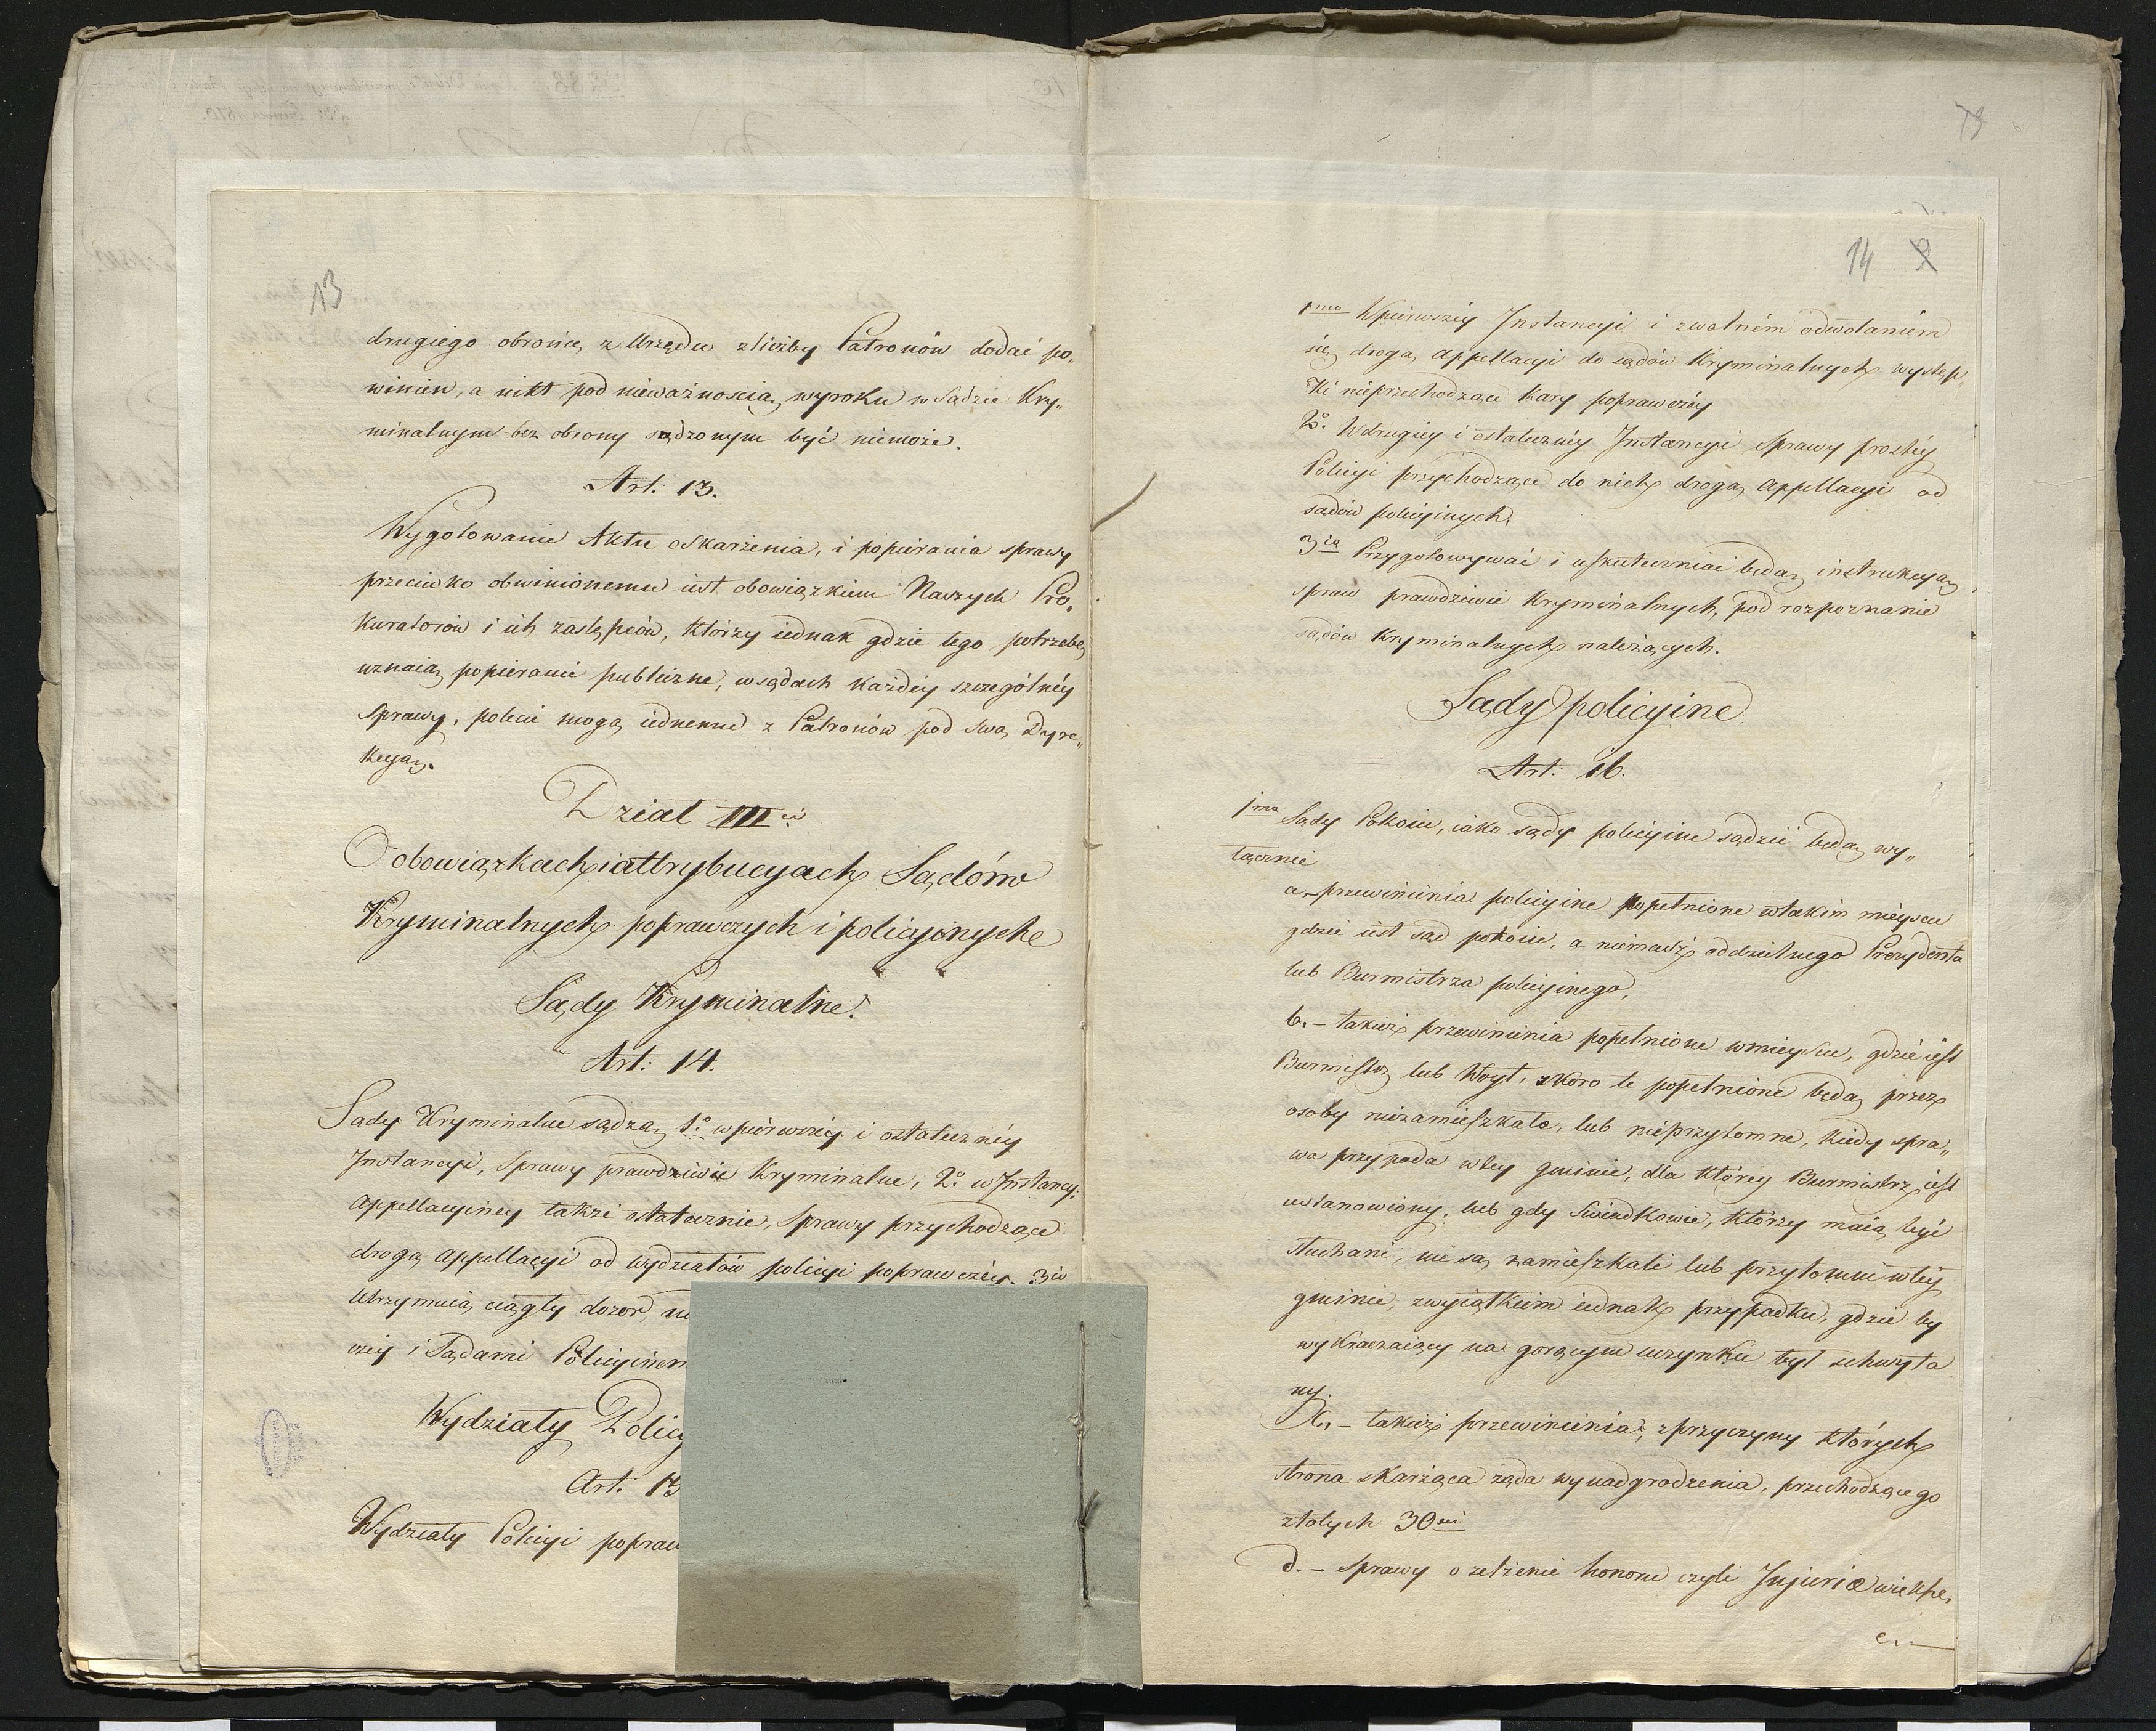 13
drugiego obrońcę z Urzędu zliczby Patronów dodać po„
winien, a nikt pod nieważnością wyroku w Sądzie Kry„
minalnym bez obrony sądzonym być niemoże.
Art: 13.
Wygotowanie Aktu oskarżenia, i popierania sprawy
przeciwko obwinionemu iest obowiązkiem Naszych Pro„
kuratorów i ich zastępców, którzy iednak gdzie tego potrzebę
uznaią popieranie publiczne, wsądach każdéy szczególnéy
sprawy, polecić mogą iednemu z Patronów pod swą Dyre„
kcyą.
Dział IIIci
O obowiązkach iattrybucyach Sądów
Kryminalnych poprawczych i policyinych
Sądy Kryminalne.
Art: 14.
Sądy Kryminalne sądzą 1o wpierwszéy i ostateczney
Instancyi, Sprawy prawdziwie Kryminalne, 2o w Instancyi
appellacyiney także ostatecznie, Sprawy przychodzące
drogą appellacyi od wydziałów policyi poprawczéy. 3io
Utrzymuią ciągły dozór
czéy i Sądami Policyinem
Wydziały Policy
Art: 15
Wydziały Policyi popraw
73
14 9
1mo Wpierwszéy Instancyi i zwolném odwołaniem
się drogą appellacyi do sądów Kryminalnych występ„
ki nieprzechodzące kary poprawczéy
2o. Wdrugiéy i ostatecznéy Instancyi Sprawy prostéy
Policyi przychodzące do nich drogą appellacyi od
sądów policyinych,
3ia Przygotowywać i uskuteczniać będą instrukcyą
spraw prawdziwie Kryminalnych, pod rozpoznanie
sądów Kryminalnych należących.
Sądy policyine
Art: 16.
1mo Sądy Pokoiu, iako sądy policyine sądzić będą wy„
łącznie
a.– przewinienia policyine popełnione wtakim mieyscu
gdzie iest sąd pokoiu, a niemasz oddzielnego Prezydenta
lub Burmistrza policyinego,
b.– takież przewinienia popełnione wmieyscu, gdzie iest
Burmistrz lub Woyt, skoro te popełnione będą przez
osoby niezamieszkałe, lub nieprzytomne, kiedy spra„
wa przypada wtey gminie, dla którey Burmistrz iest
ustanowiony, lub gdy Swiadkowie, którzy maią być
słuchani, nie są zamieszkali lub przytomni wtéy
gminie, zwyiątkiem iednak przypadku, gdzie by
wykraczaiący na gorącym uczynku był schwyta
ny.
c.– takież przewinienia, zprzyczyny których
strona skarżąca żąda wynadgrodzenia, przechodzącego
złotych 30ci
d.– Sprawy o zelżenie honoru czyli Injurie większe,